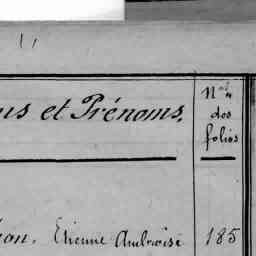 ms et Prénoms,
Nos
des
folios
on, Etienne Ambroise 185